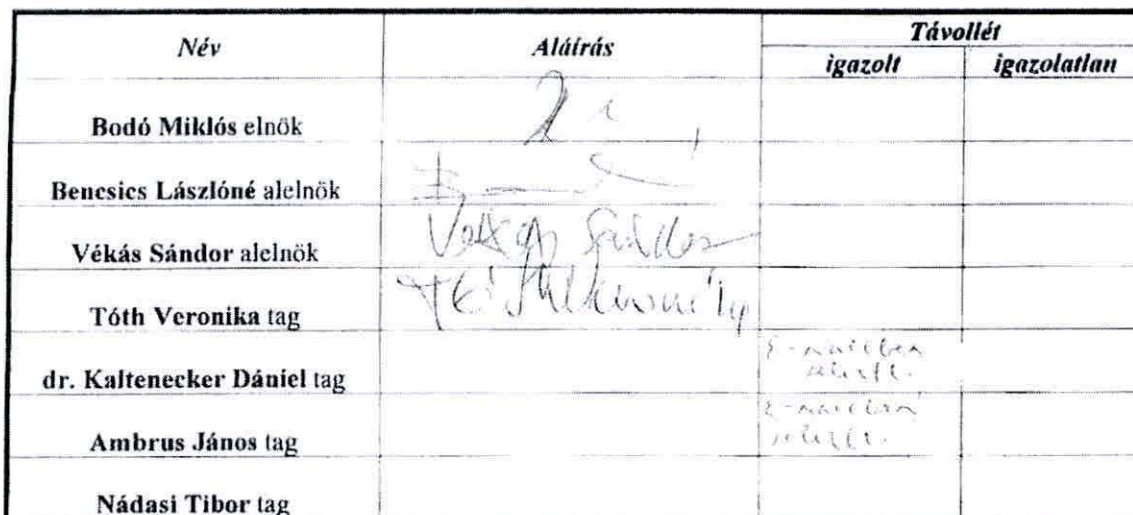 Név Aláírás Távollét
igazolt igazolatlan
Bodó Miklós elnök
Bencsics Lászlóné alelnök
Vékás Sándor alelnök Vékás Sándor
Tóth Veronika tag
dr. Kaltenecker Dániel tag E-mailben
jelezte.
Ambrus János tag E-mailben
jelezte.
Nádasi Tibor tag